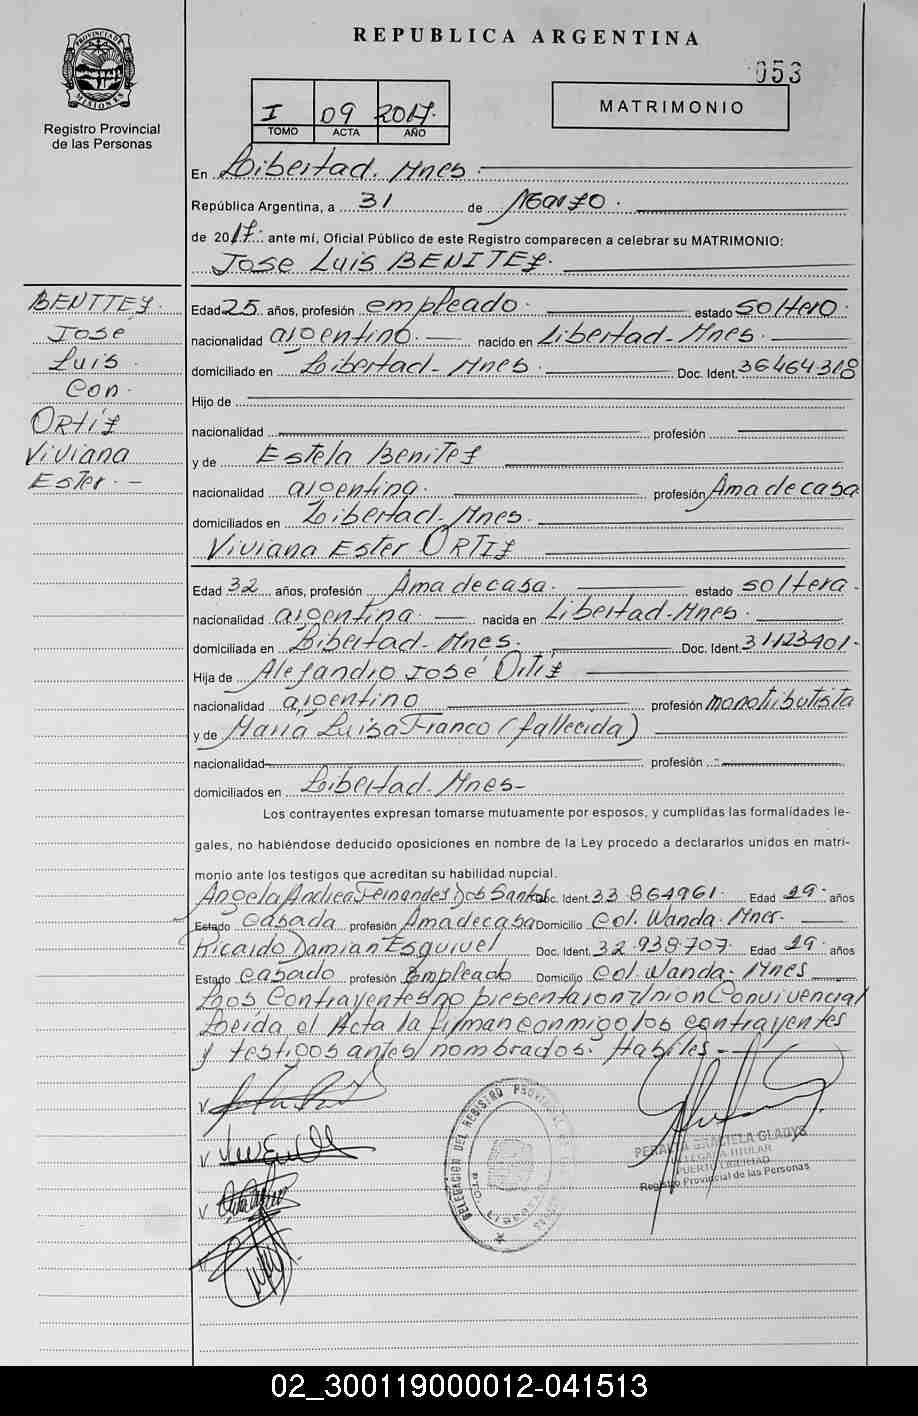 REPUBLICA ARGENTINA
053
PROVINCIA DE MISIONES
Registro Provincial
de las Personas
I 09 2017.
TOMO ACTA AÑO
MATRIMONIO
En Libertad. Mnes.
República Argentina, a 31 de Marzo.
de 2017. ante mí, Oficial Público de este Registro comparecen a celebrar su MATRIMONIO:
Jose Luis BENITEZ.
BENITEZ.
José
Luis
Con
ORtíz
Viviana
Ester. -
Edad 25 años, profesión empleado. estado soltero.
nacionalidad argentino. nacido en Libertad-Mnes.
domiciliado en Libertad-Mnes. Doc. Ident. 36464318
Hijo de
nacionalidad profesión
y de Estela Benitez
nacionalidad argentina. profesión Ama de casa
domiciliados en Libertad-Mnes.
Viviana Ester ORTIZ
Edad 32 años, profesión Ama de casa. estado soltera.
nacionalidad argentina. nacida en Libertad-Mnes.
domiciliada en Libertad-Mnes. Doc. Ident. 31123401.
Hija de Alejandro José Ortiz
nacionalidad argentino profesión monotributista
y de Maria Luisa Franco (fallecida)
nacionalidad profesión
domiciliados en Libertad. Mnes-
Los contrayentes expresan tomarse mutuamente por esposos, y cumplidas las formalidades le-
gales, no habiéndose deducido oposiciones en nombre de la Ley procedo a declararlos unidos en matri-
monio ante los testigos que acreditan su habilidad nupcial.
Angela Andrea Fernandes Dos Santos Doc. Ident. 33.864961. Edad 29. años
Estado Casada profesión Ama de casa Domicilio Col. Wanda. Mnes.
Ricardo Damian Esquivel Doc. Ident. 32.938707. Edad 29. años
Estado Casado profesión Empleado Domicilio Col. Wanda. Mnes
Los Contrayentes no presentaron Union Convivencial
Leida el Acta la firman conmigo los contrayentes
y testigos antes nombrados. Habiles -
DELEGACION DEL REGISTRO PROVINCIAL
PERALTA GRACIELA GLADYS
DELEGADA TITULAR
PUERTO LIBERTAD
Registro Provincial de las Personas
02_300119000012-041513